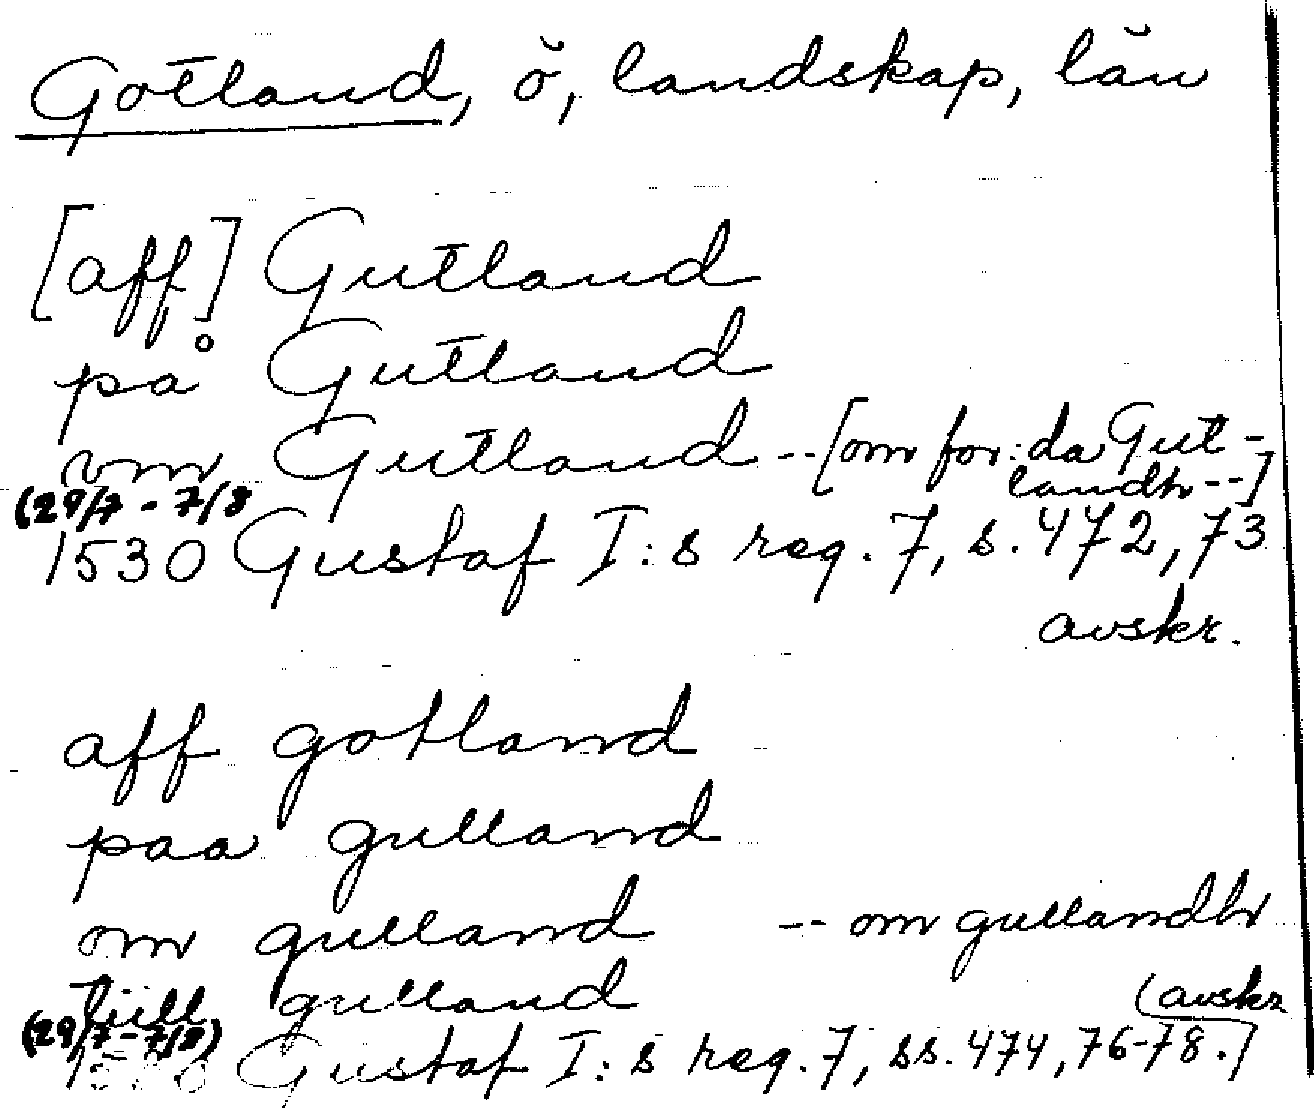 Gotland, ö, landskap, län
[aff] Gutland
på Gutland
vm Gutland -- [om for:da Gut-
landh --]
(29/7 - 7/8
1530 Gustaf I:s reg. 7, s. 472, 73
avskr.
aff gotland
paa gulland
om gulland -- om gullandh
tiill gulland
(avskr
(29/7 - 7/8)
1530 Gustaf I:s reg. 7, ss. 474, 76-78.]